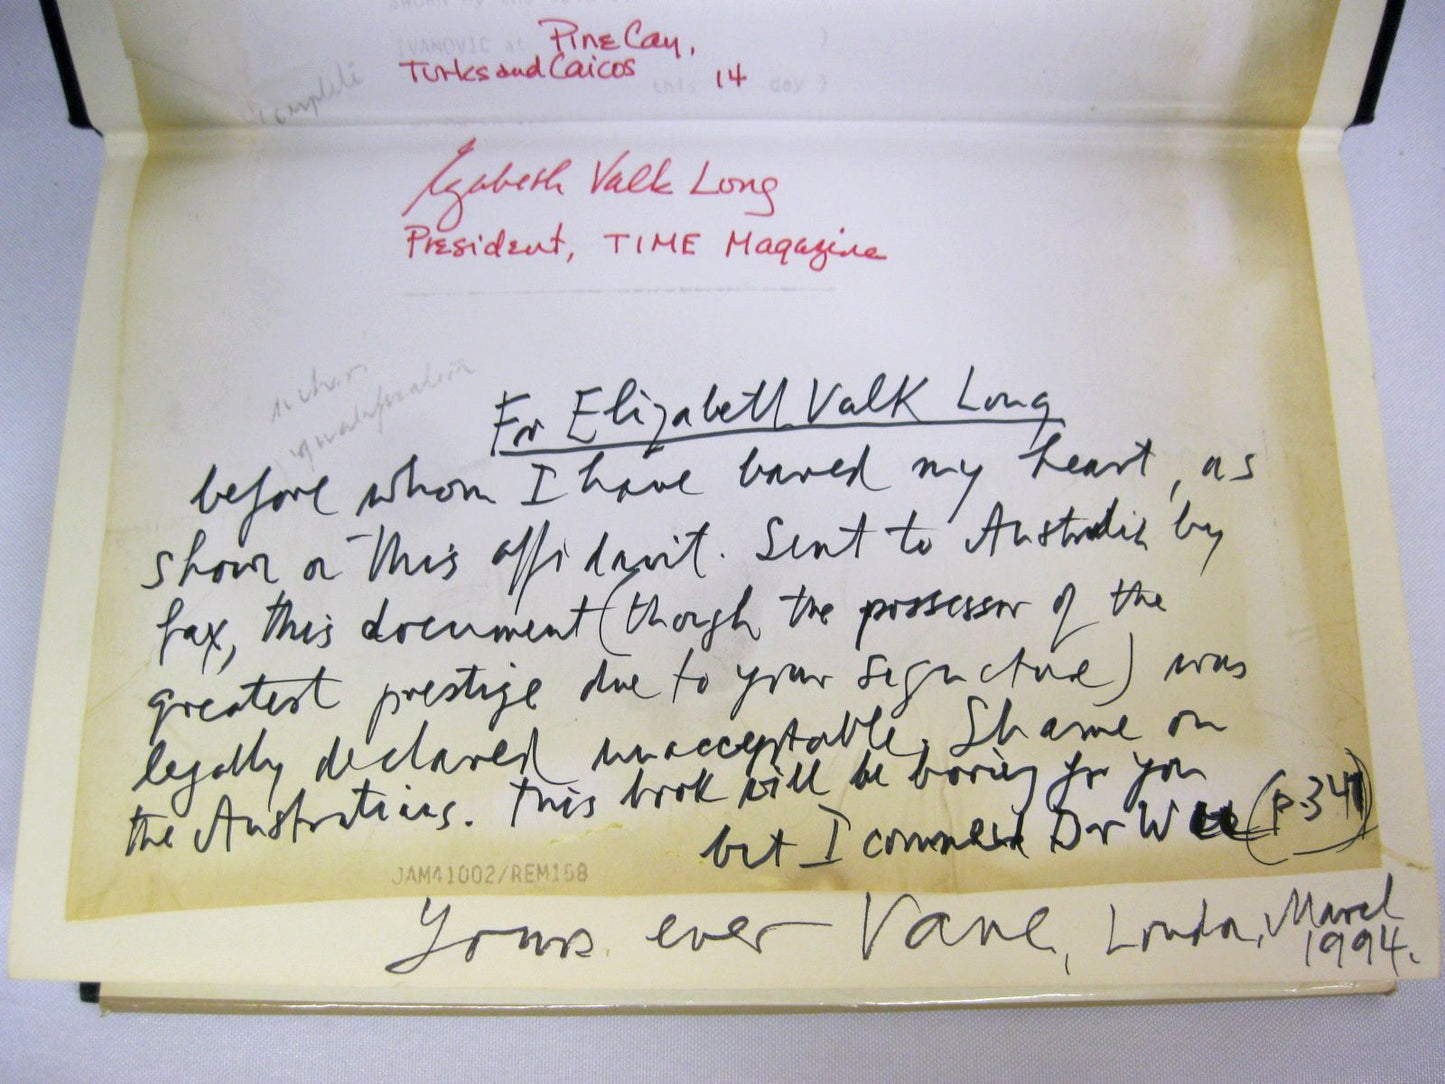 IVANOVIC at Pine Cay,
Turks and Caicos
this 14 day )
complete
Elizabeth Valk Long
President, TIME Magazine
For Elizabeth Valk Long
before whom I have bared my heart, as
shown on this affidavit. Sent to Australia by
fax, this document (though the possessor of the
greatest prestige due to your signature) was
legally declared unacceptable. Shame on
the Australians. This book will be boring for you
but I commend Dr (p. 341)
JAM41002/REM168
Yours ever Vane, London, March
1994.